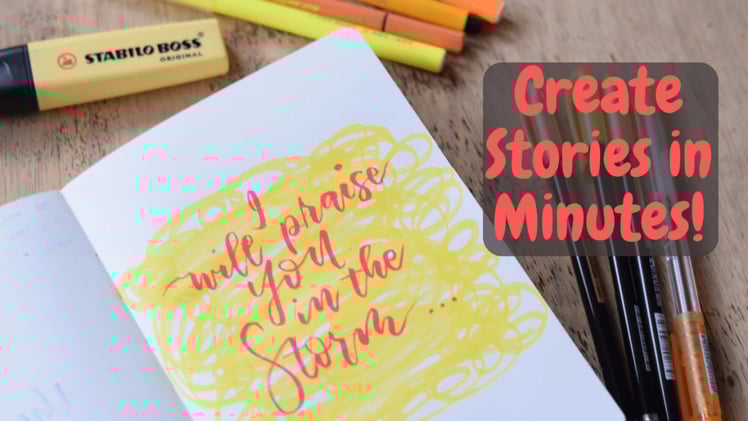 STABILO BOSS
ORIGINAL
Create
Stories in
Minutes!
I
will praise
you
in the
Storm...